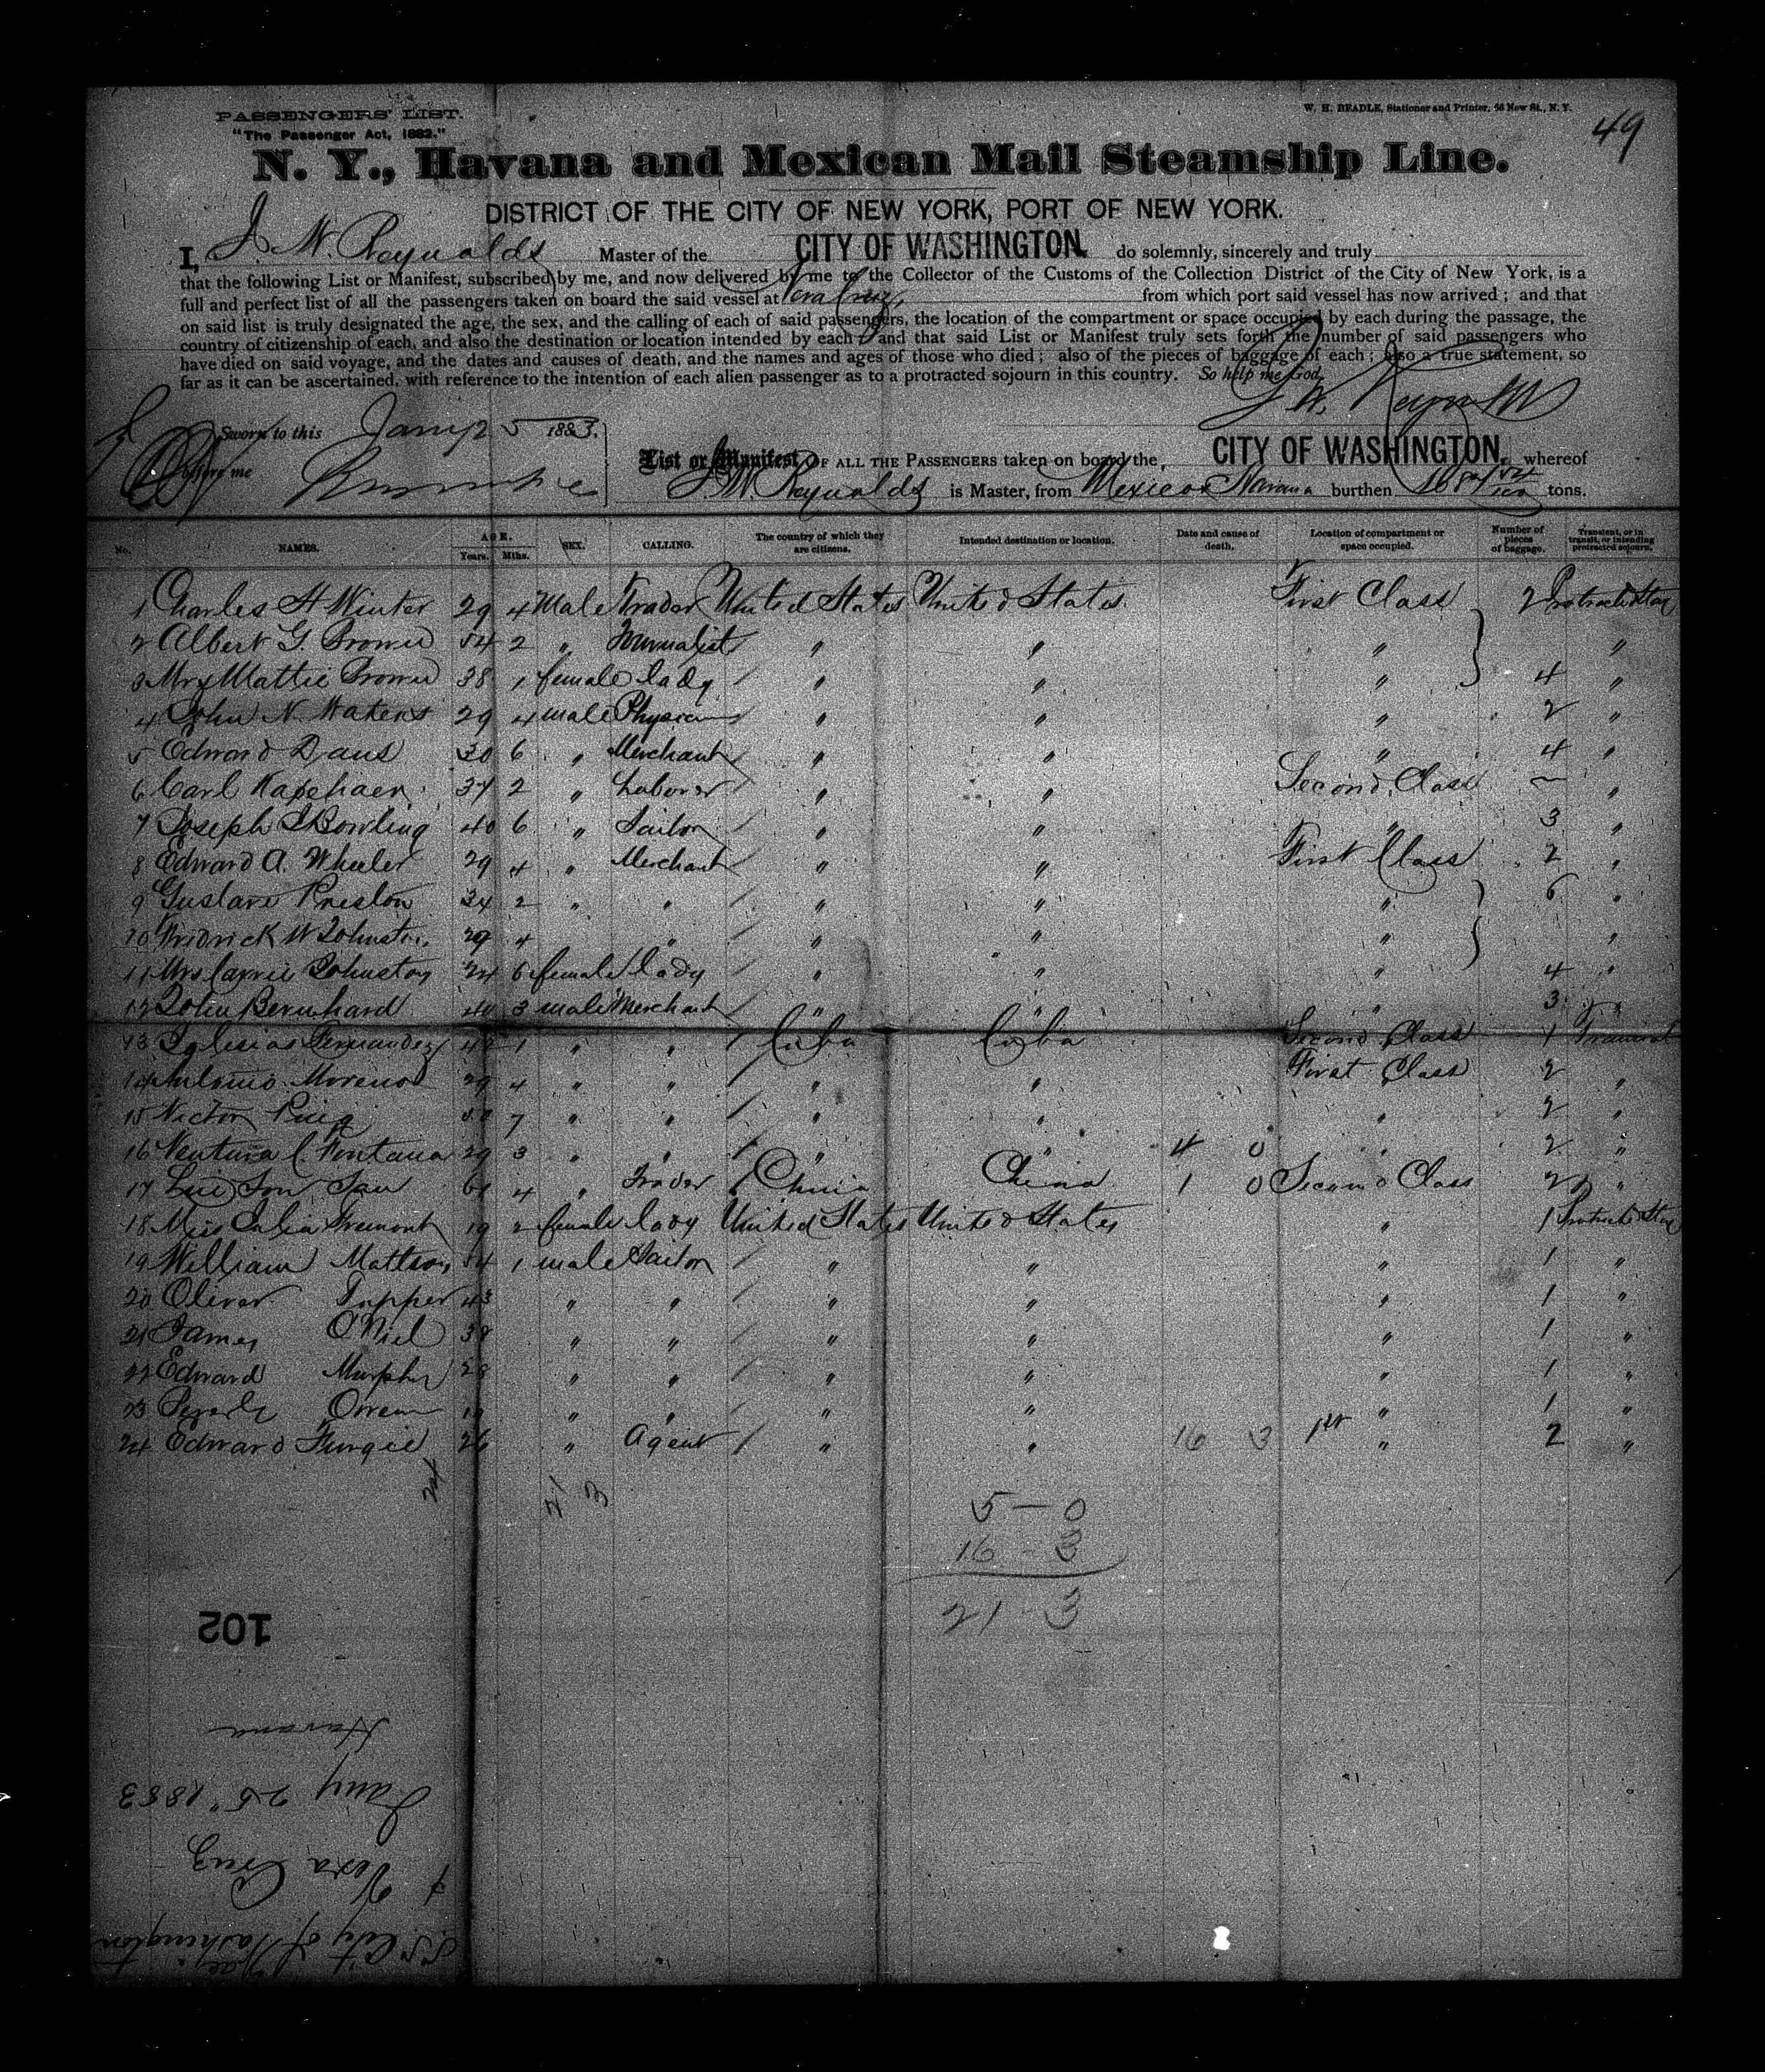 PASSENGERS' LIST.
"The Passenger Act, 1882."
W. H. BEADLE, Stationer and Printer, 56 New St., N. Y.
49
N. Y., Havana and Mexican Mail Steamship Line.
DISTRICT OF THE CITY OF NEW YORK, PORT OF NEW YORK.
I, J. W. Reynolds Master of the CITY OF WASHINGTON do solemnly, sincerely and truly
that the following List or Manifest, subscribed by me, and now delivered by me to the Collector of the Customs of the Collection District of the City of New York, is a
full and perfect list of all the passengers taken on board the said vessel at Vera Cruz, from which port said vessel has now arrived; and that
on said list is truly designated the age, the sex, and the calling of each of said passengers, the location of the compartment or space occupied by each during the passage, the
country of citizenship of each, and also the destination or location intended by each; and that said List or Manifest truly sets forth the number of said passengers who
have died on said voyage, and the dates and causes of death, and the names and ages of those who died; also of the pieces of baggage of each; also a true statement, so
far as it can be ascertained, with reference to the intention of each alien passenger as to a protracted sojourn in this country. So help me God,
J. W. Reynolds
Sworn to this Jany 25 1883.
before me
List or Manifest OF ALL THE PASSENGERS taken on board the, CITY OF WASHINGTON, whereof
J. W. Reynolds is Master, from Mexico Havana burthen tons.
No. NAMES. AGE. Years. Mths. SEX. CALLING. The country of which they are citizens. Intended destination or location. Date and cause of death. Location of compartment or space occupied. Number of pieces of baggage. Transient, or in transit, or intending protracted sojourn.
1 Charles H Winter 29 4 Male Trader United States United States First Class 2 Protracted Stay
2 Albert G. Brown 54 2 " Journalist " " " "
3 Mrs Mattie Brown 38 1 female lady " " " 4 "
4 John N. Waters 29 4 male Physician " " " 2 "
5 Edward Daus 30 6 " Merchant " " " 4 "
6 Carl 37 2 " Laborer " " Second Class — "
7 Joseph Bowling 40 6 " Sailor " " " 3 "
8 Edward A. Wheeler 29 4 " Merchant " " First Class 2 "
9 Gustave Preston 34 2 " " " " " 6 "
10 Fridrick W Johnston 29 4 " " " " "
11 Mrs Carrie Johnston 24 6 female lady " " " 4 "
12 John Bernhard 40 3 male Merchant " " " 3 "
13 Iglesias Fernandez 42 1 " " Cuba Cuba Second Class 1 Transient
14 Antonio Moreno 29 4 " " " " First Class 2 "
15 Victor Puig 7 " " " " " 2 "
16 Ventura C. Fontana 29 3 " " " " 4 0 " 2 "
17 4 " Trader China China 1 0 Second Class 2 "
18 Miss Julia Fremont 19 2 female lady United States United States " 1 Protracted Stay
19 William Mattson 54 1 male Sailor " " " 1 "
20 Oliver Tupper 43 " " " " " 1 "
21 James O'Niel 38 " " " " " 1 "
22 Edward Murphy 28 " " " " " 1 "
23 " " " " " 1 "
24 Edward 26 " Agent " " 16 3 1st " 2 "
24
21 3
5 — 0
16 - 3
21 - 3
102
Havana
Jany 25" 1883
& Vera Cruz
S.S. City of Washington